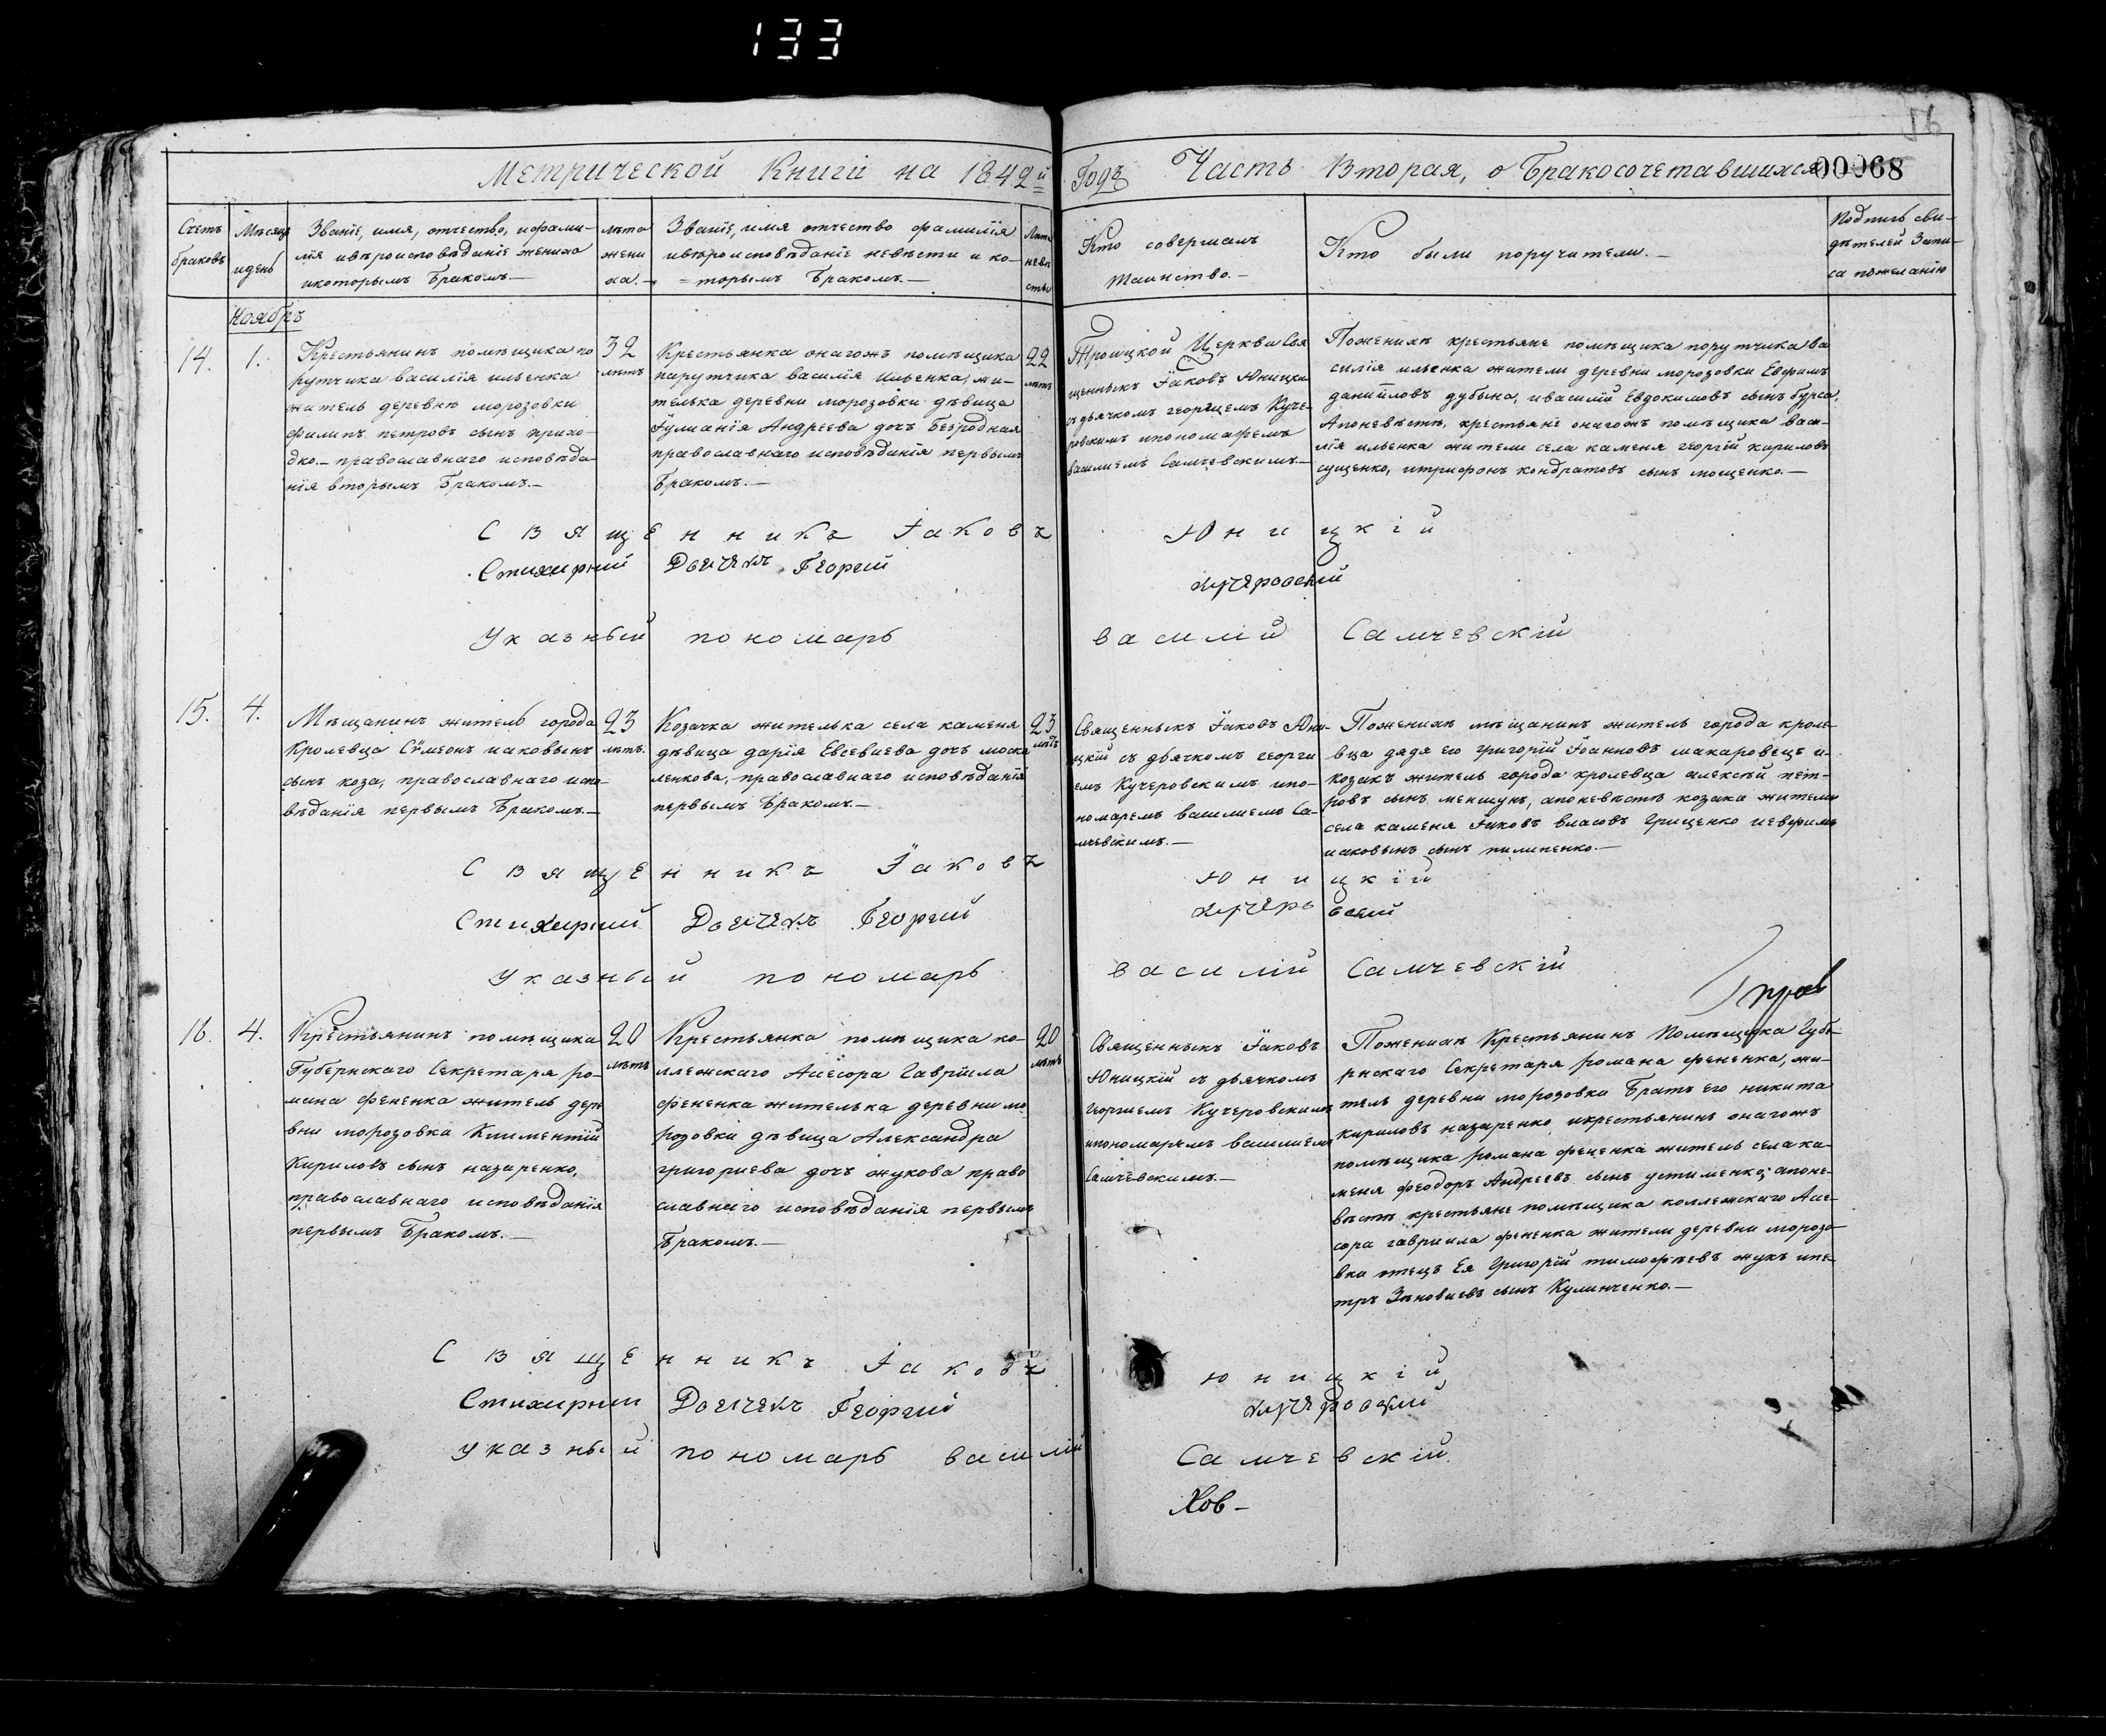 133
56
Метрической Книги на 1842й Годъ Часть Вторая, о Бракосочетавшихся 00068
Счетъ браковъ
Мѣсяцъ и день
Званіе, имя, отчество, и фами-
лія и вѣроисповѣданіе жениха
и которымъ Бракомъ.—
лѣта
жени
ха.—
Званіе, имя отчество фамилія
и вѣроисповѣданіе невѣсти и ко-
=торымъ Бракомъ.—
Лѣта
невѣ
сты
Кто совершалъ
Таинство.—
Кто были поручители.—
Подпись сви-
дѣтелей Запи-
си по желанію
Ноябръ
14. 1.
Крестьянинъ помѣщика по
рутчика василія ильенка
житель деревнѣ морозовки
филипъ петровъ сынъ прихо-
дко.— православнаго исповѣда-
нія вторымъ Бракомъ.—
32
лѣтъ
Крестьянка онагожъ помѣщика
парутчика василія Ильенка, жи-
телька деревни морозовки дѣвица
Іулианія Андреева дочь Безродная
православнаго исповѣданія первымъ
Бракомъ.—
22
лѣтъ
Троицкой Церкви Свя
щенныкъ Іаковъ Юницки
съ дьячкомъ георгіемъ Куче-
ровскимъ ипономаремъ
василиемъ Самчевскимъ.—
Поженихѣ крестьяне помѣщика порутчика ва
силія ильенка жители деревни морозовки Евфимъ
даниіловъ дубына, ивасилій Евдокимовъ сынъ бурса,
Апоневѣстѣ, крестьяне онагожъ помѣщика васи-
лія ильенка жители села каменя георгій кириловъ
сущенко, итрифонъ кондратовъ сынъ мощенко.—
Священникъ Іаковъ Юницкій
Стихирный Дьячекъ Георгій Кучеровскій
Указный пономарь василій Самчевскій
15. 4.
Мѣщанинъ житель города
Кролевца Сѵмеонъ иаковынъ
сынъ коза, православнаго испо-
вѣданія первымъ Бракомъ.—
23
лѣтъ.
Козачка жителька села каменя
дѣвица дарія Евсевиева дочь моска
ленкова, православнаго исповѣданія
первымъ Бракомъ.—
23
лѣтъ
Священныкъ Іаковъ Юни-
цкій съ дьячкомъ георги
емъ Кучеровскимъ ипо-
номаремъ василиемъ Са-
мчевскимъ.—
Поженихѣ мѣщанинъ житель города кроле-
вца дядя его григорій Іоанновъ макаровецъ и-
козакъ житель города кролевца алексѣй пет-
ровъ сынъ меншунъ, апоневѣстѣ козаки жители
села каменя Іаковъ власовъ Грищенко иевфимъ
иаковынъ сынъ пилипенко.—
Священникъ Іаковъ Юницкій
Стихирный Дьячекъ Георгій Кучеровскій
Указный пономарь василій Самчевскій
16. 4.
Крестьянинъ помѣщика
Губернскаго Секретаря ро-
мана фененка житель дере
вни морозовка Климентій
Кириловъ сынъ назаренко,
православнаго исповѣданія
первымъ Бракомъ.—
20
лѣтъ
Крестьянка помѣщика ко-
ллежскаго Асесора Гавріила
фененка жителька деревни мо
розовки дѣвица Александра
григориева дочъ жукова право
славнаго исповѣданія первымъ
Бракомъ.—
20
лѣтъ
Священныкъ Іаковъ
Юницкій съ дьячкомъ
георгиемъ Кучеровскимъ
ипономаремъ василиемъ
Самчевскимъ.—
Поженихѣ Крестьянинъ Помѣщика Губе-
рнскаго Секретаря романа фененка, жи-
тель деревни морозовки Братъ его никита
Кириловъ назаренко икрестьянинъ онагожъ
помѣщика романа фененка житель села ка-
меня феодоръ Андреевъ сынъ устименко; апоне-
вѣстѣ крестьяне помѣщика коллежскаго Асе-
сора гавриила фененка жители деревни морозо-
вки отецъ Ея Григорій тимофѣевъ жукъ ипе-
тръ Зѣновиевъ сынъ Кулинченко.—
Священникъ Іаковъ Юницкій
Стихирный Дьячекъ Георгій Кучеровскій
указный пономарь василій Самчевскій.